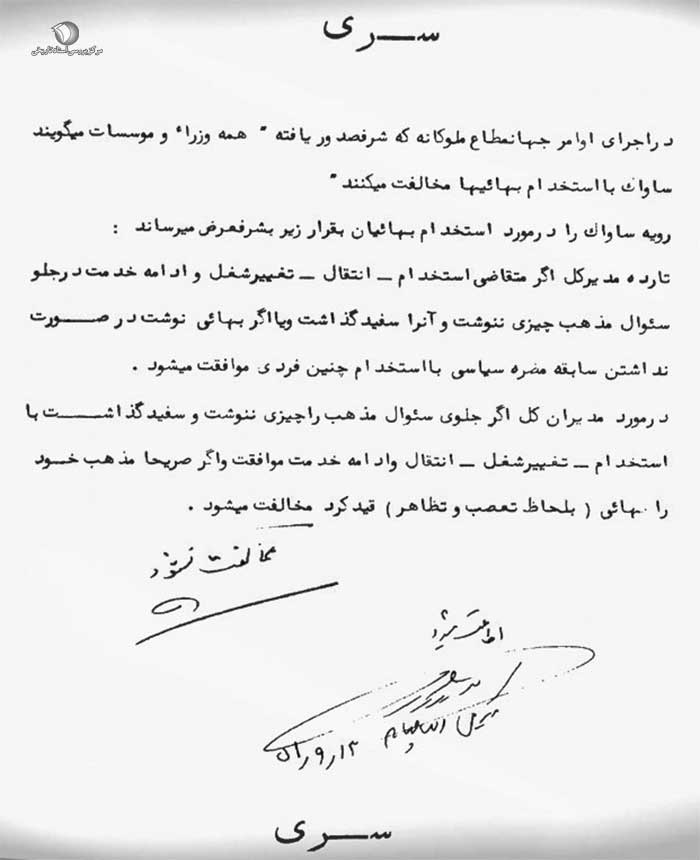 سری
مرکز بررسی اسناد تاریخی
در اجرای اوامر جهانمطاع ملوکانه که شرفصدور یافته " همه وزراء و موسسات میگویند
ساواك با استخدام بهائیها مخالفت میکنند "
رویه ساواك را در مورد استخدام بهائیان بقرار زیر بشرفعرض میرساند :
تارده مدیرکل اگر متقاضی استخدام ـ انتقال ـ تغییرشغل و ادامه خدمت در جلو
سئوال مذهب چیزی ننوشت و آنرا سفید گذاشت ویا اگر بهائی نوشت در صورت
نداشتن سابقه مضره سیاسی با استخدام چنین فردی موافقت میشود .
در مورد مدیران کل اگر جلوی سئوال مذهب را چیزی ننوشت و سفید گذاشت با
استخدام ـ تغییرشغل ـ انتقال وادامه خدمت موافقت واگر صریحا مذهب خود
را بهائی ( بلحاظ تعصب و تظاهر ) قید کرد مخالفت میشود .
مخالفت نشود
اطاعت میشود
سری